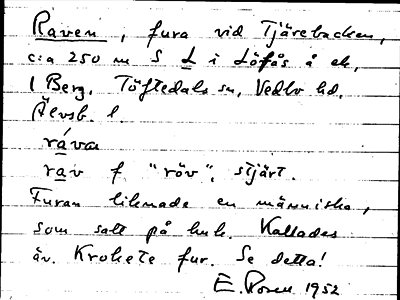 Raven, fura vid Tjärebacken,
c:a 250 m S L i Löfås å ek,
1 Berg, Töftedals sn, Vedbo hd,
Älvsb. l.
ráva
rav f "röv", stjärt.
Furan liknade en människa,
som satt på huk. Kallades
äv. Krokete fur. Se detta!
E. Noren 1952